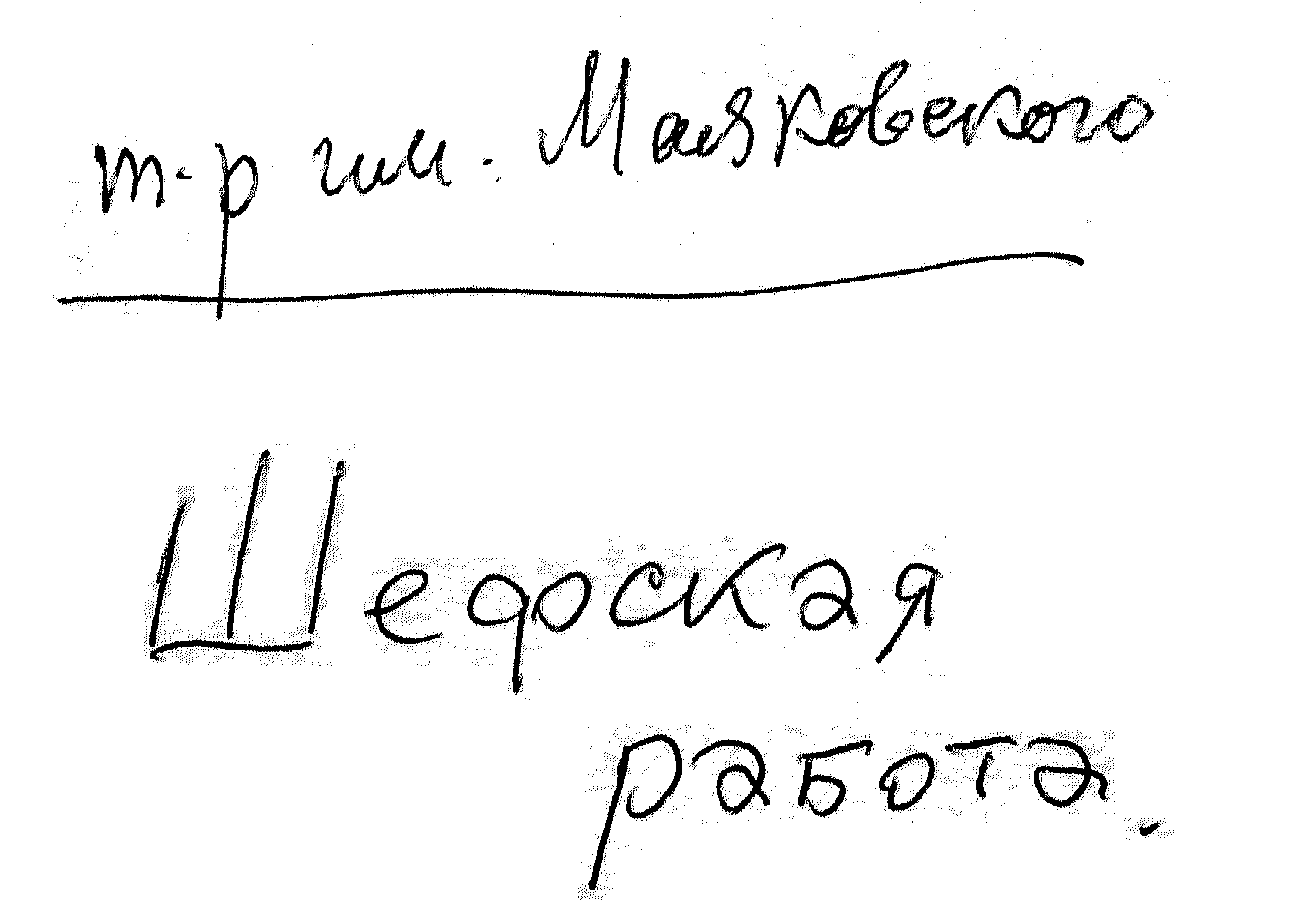 т-р им. Маяковского
Шефская
работа.